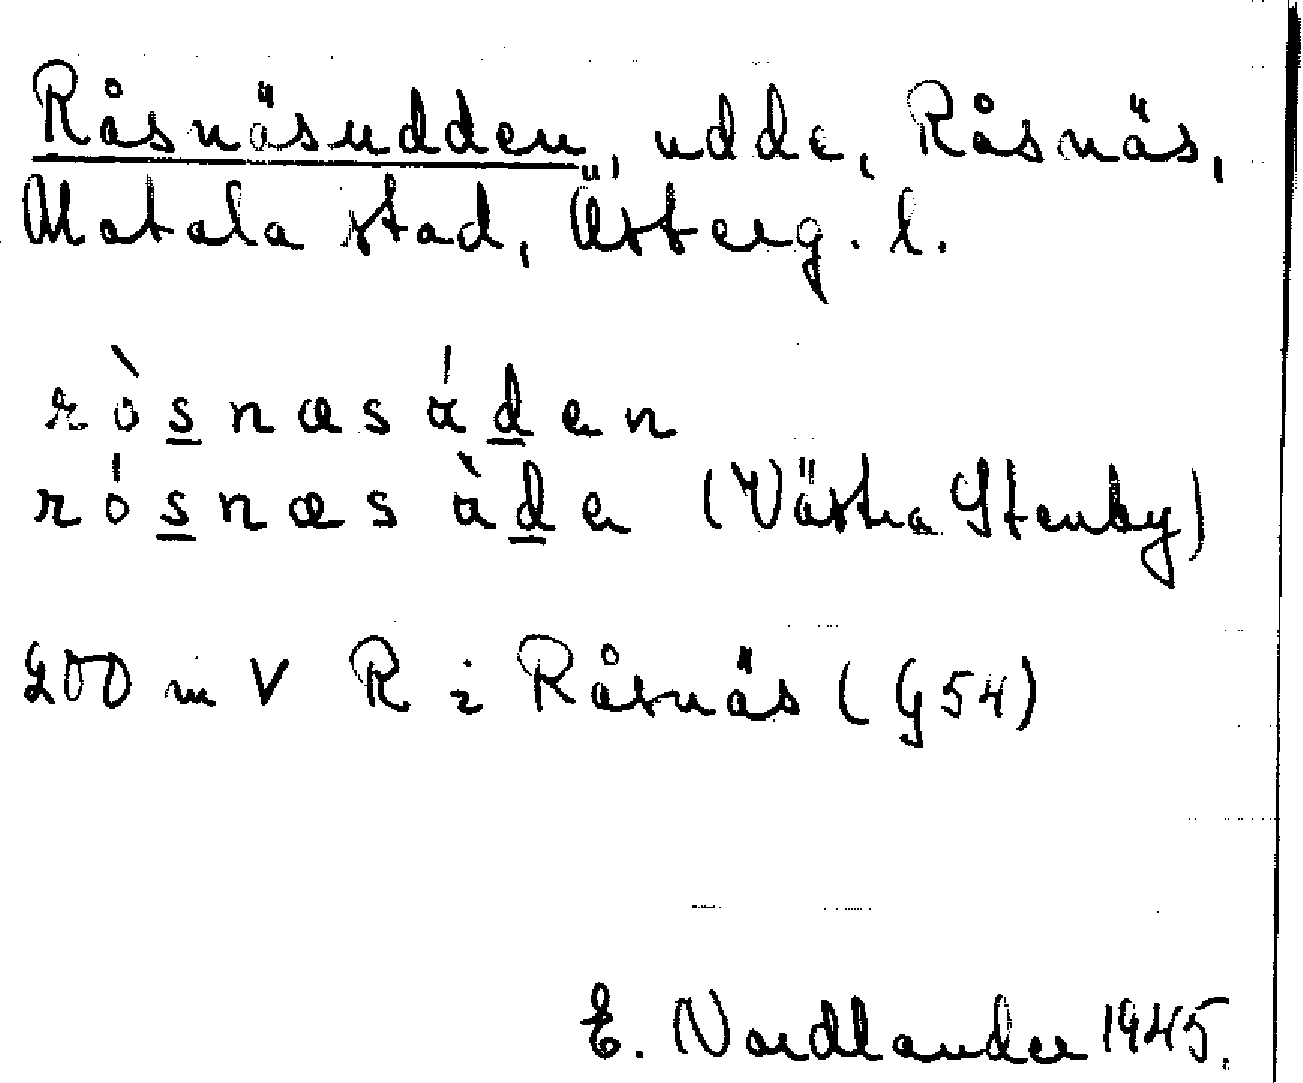 Råsnäsudden, udde, Råsnäs,
Motala stad, Österg. l.
ròsnæsáden
rósnæsàde (Västra Stenby)
200 m V R i Råsnäs (G54)
E. Nordlander 1945.